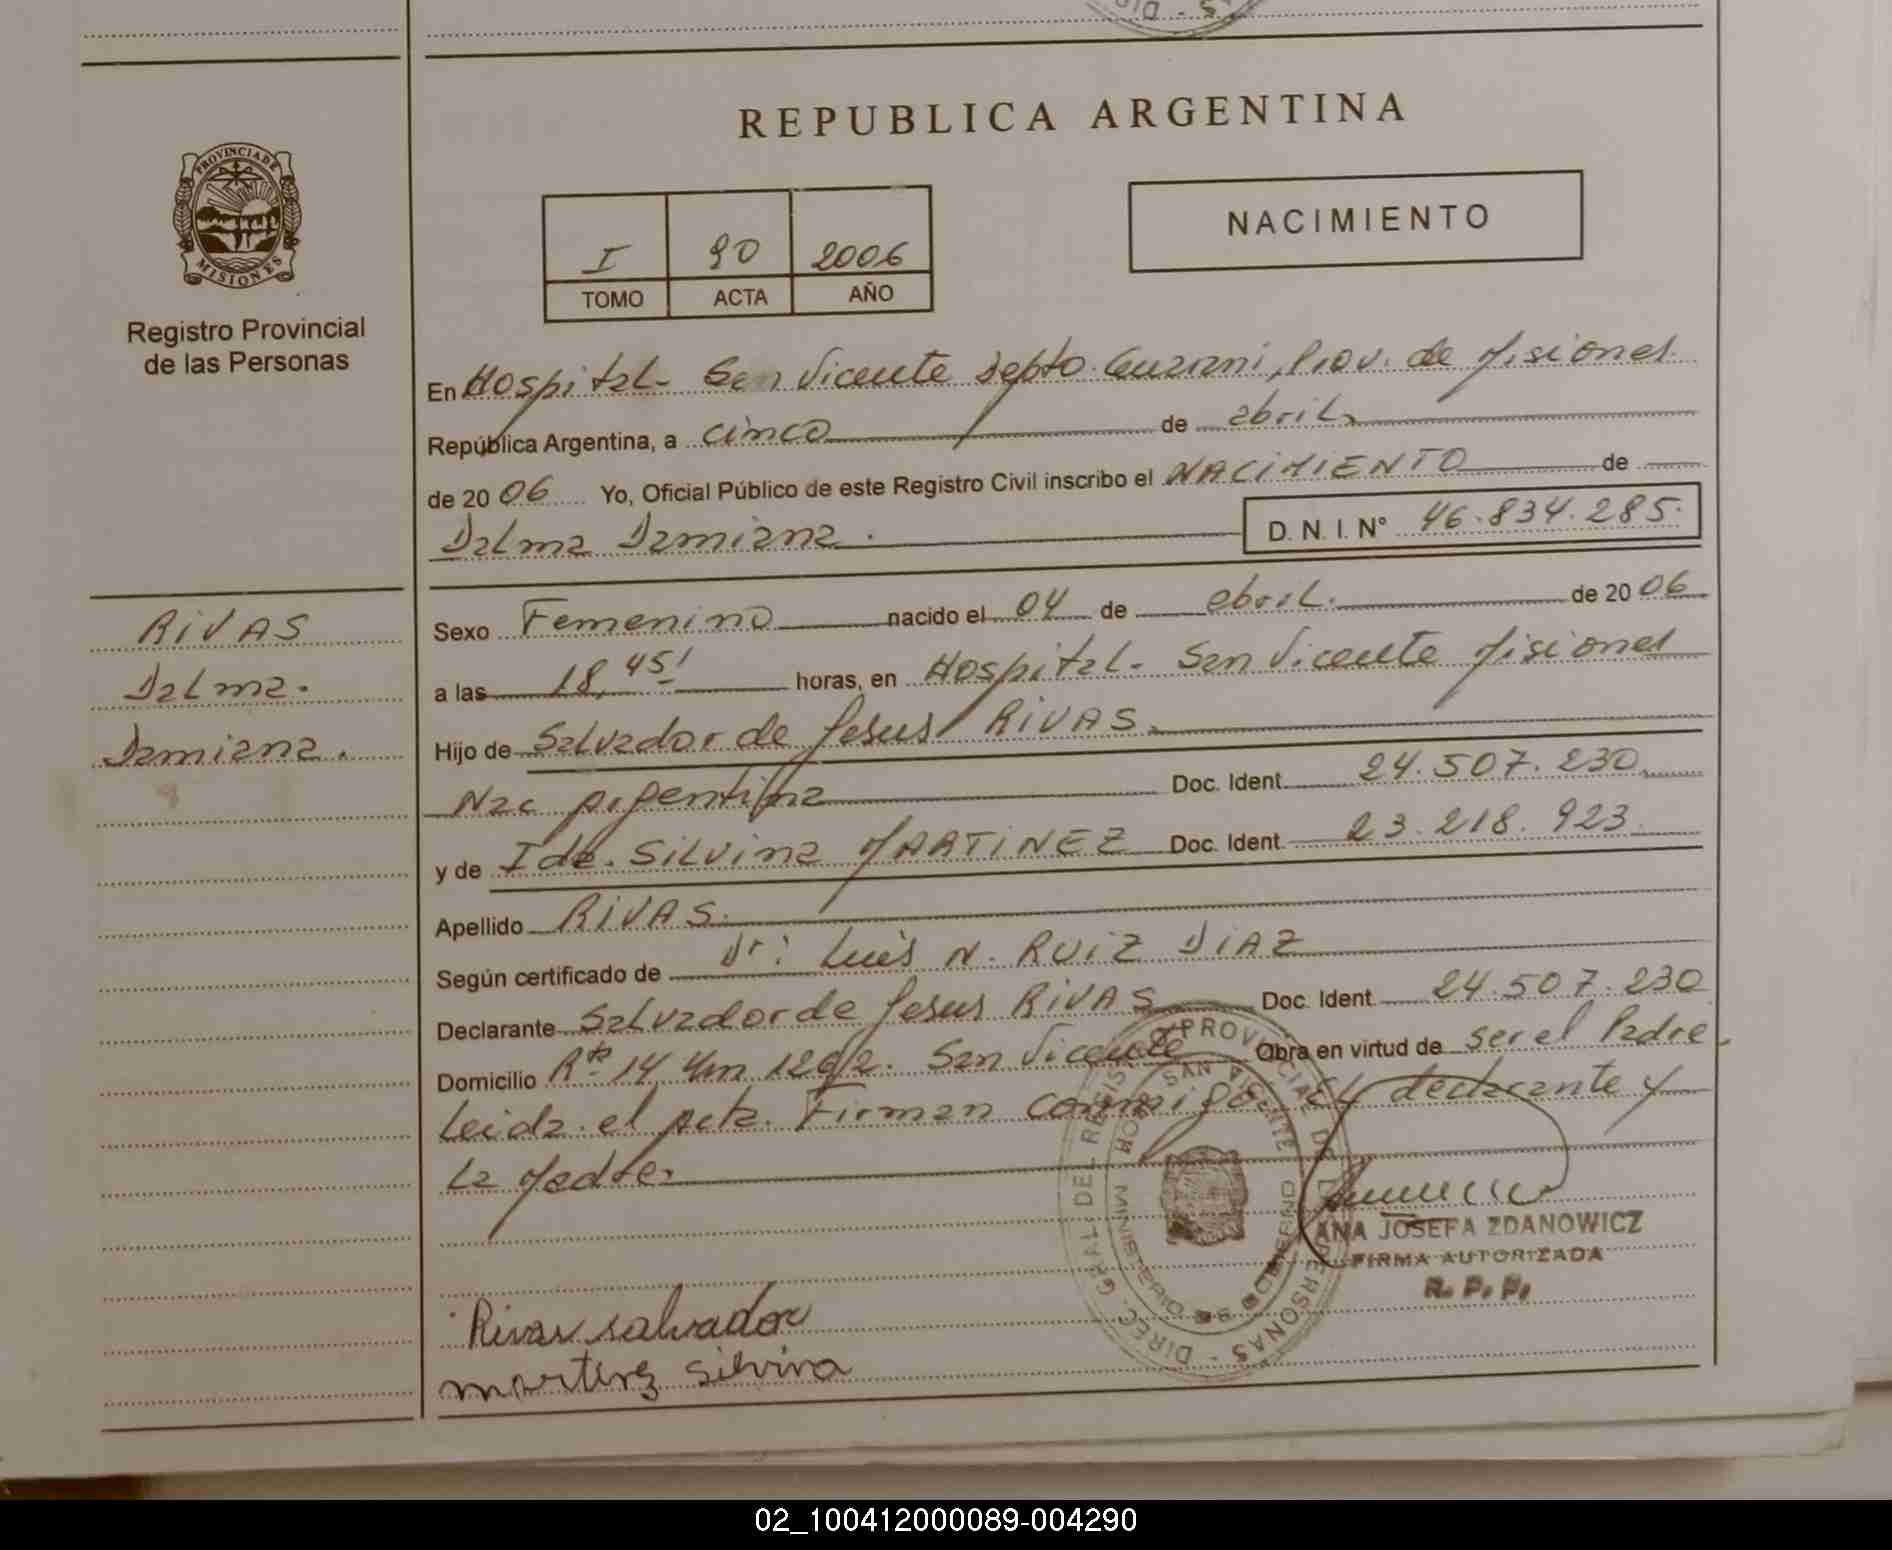 REPUBLICA ARGENTINA
PROVINCIA DE
MISIONES
Registro Provincial
de las Personas
I 90 2006
TOMO ACTA AÑO
NACIMIENTO
En Hospital - San Vicente Depto. Guarani, Prov. de Misiones
República Argentina, a cinco de abril
de 2006 Yo, Oficial Público de este Registro Civil inscribo el NACIMIENTO de
Dalma Damiana. D. N. I. N° 46.834.285.
RIVAS
Dalma.
Damiana.
Sexo Femenino nacido el 04 de abril. de 2006
a las 18,45' horas, en Hospital - San Vicente Misiones
Hijo de Salvador de Jesus RIVAS.
Nac Argentina Doc. Ident. 24.507.230
y de Ida. Silvina MARTINEZ Doc. Ident. 23.218.923
Apellido RIVAS.
Según certificado de Dr: Luis N. RUIZ DIAZ
Declarante Salvador de Jesus RIVAS Doc. Ident. 24.507.230
Domicilio 14 Km San Vicente Obra en virtud de ser el Padre.
Leida el acta. Firman conmigo. El declarante y
La Madre
DIREC. GRAL. DEL REGISTRO PROVINCIAL DE LAS PERSONAS
SAN VICENTE
MINISTERIO DE GOBIERNO
ANA JOSEFA ZDANOWICZ
FIRMA AUTORIZADA
R. P. P.
Rivas salvador
silvina
02_100412000089-004290